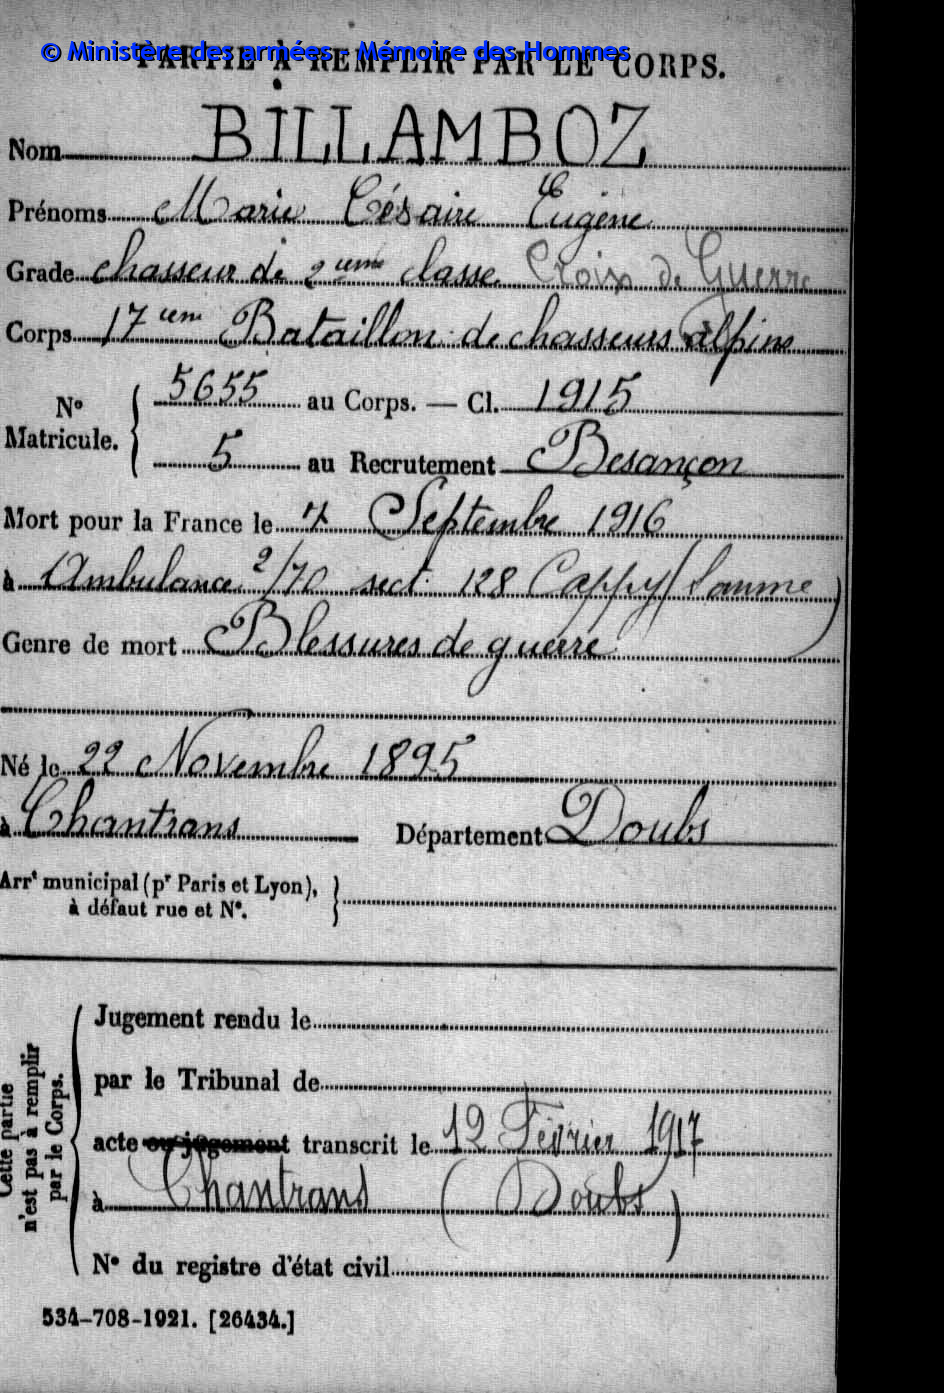 © Ministère des armées - Mémoire des Hommes
PARTIE À REMPLIR PAR LE CORPS.
Nom BILLAMBOZ
Prénoms Marie Césaire Eugène
Grade chasseur de 2ème classe Croix de Guerre
Corps 17ième Bataillon de chasseurs alpins
No Matricule. { 5655 au Corps. — Cl. 1915
5 au Recrutement Besançon
Mort pour la France le 7 Septembre 1916
à Ambulance 2/70 sect. 128 Cappy (Somme)
Genre de mort Blessures de guerre
Né le 22 Novembre 1895
à Chantrans Département Doubs
Arrt municipal (pr Paris et Lyon), }
à défaut rue et No.
Cette partie
n'est pas à remplir
par le Corps.
Jugement rendu le
par le Tribunal de
acte ou jugement transcrit le 12 Février 1917
à Chantrans (Doubs)
No du registre d'état civil
534-708-1921. [26434.]